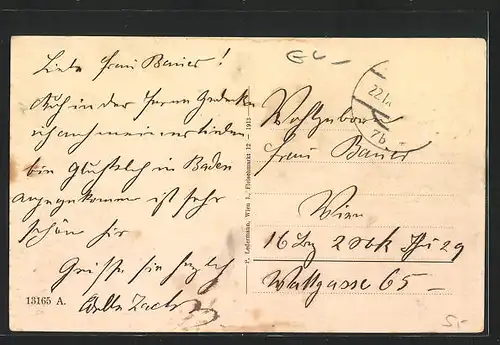 Liebe Frau Bauer!
Auch in der Ferne Gedenke
ich an meine
bin Glücklich in Baden
angegekommen ist sehr
schön hir
Grüsse sie herzlich
13165 A.
P. Ledermann, Wien I., Fleischmarkt 12 — 1913
22.
7b
Wohlgeboren
Frau Bauer
Wien
16
29
Wattgasse 65 —